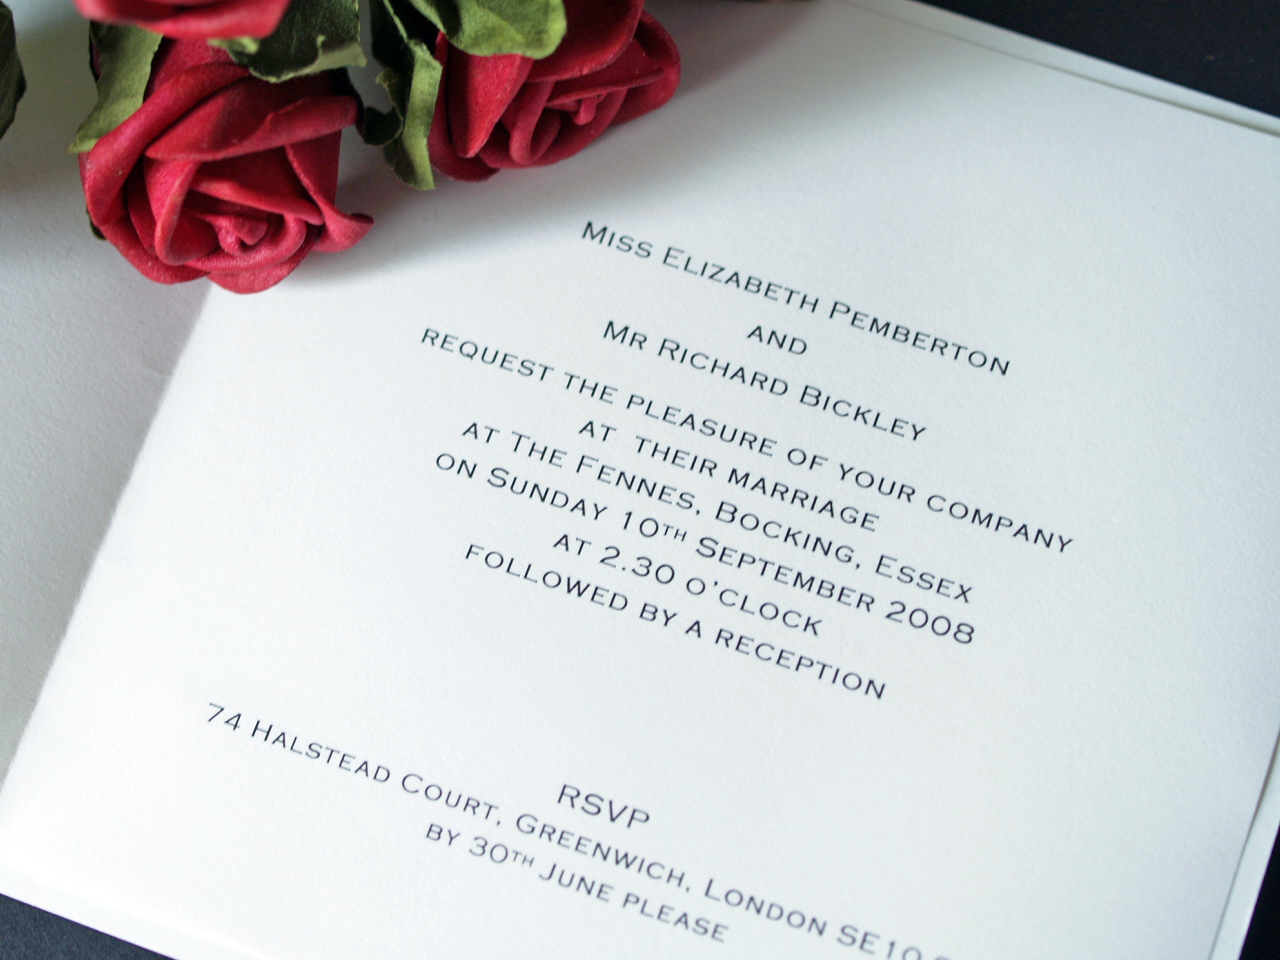 Miss Elizabeth Pemberton
and
Mr Richard Bickley
request the pleasure of your company
at their marriage
at The Fennes, Bocking, Essex
on Sunday 10th September 2008
at 2.30 o'clock
followed by a reception
RSVP
74 Halstead Court, Greenwich, London SE10
by 30th June please